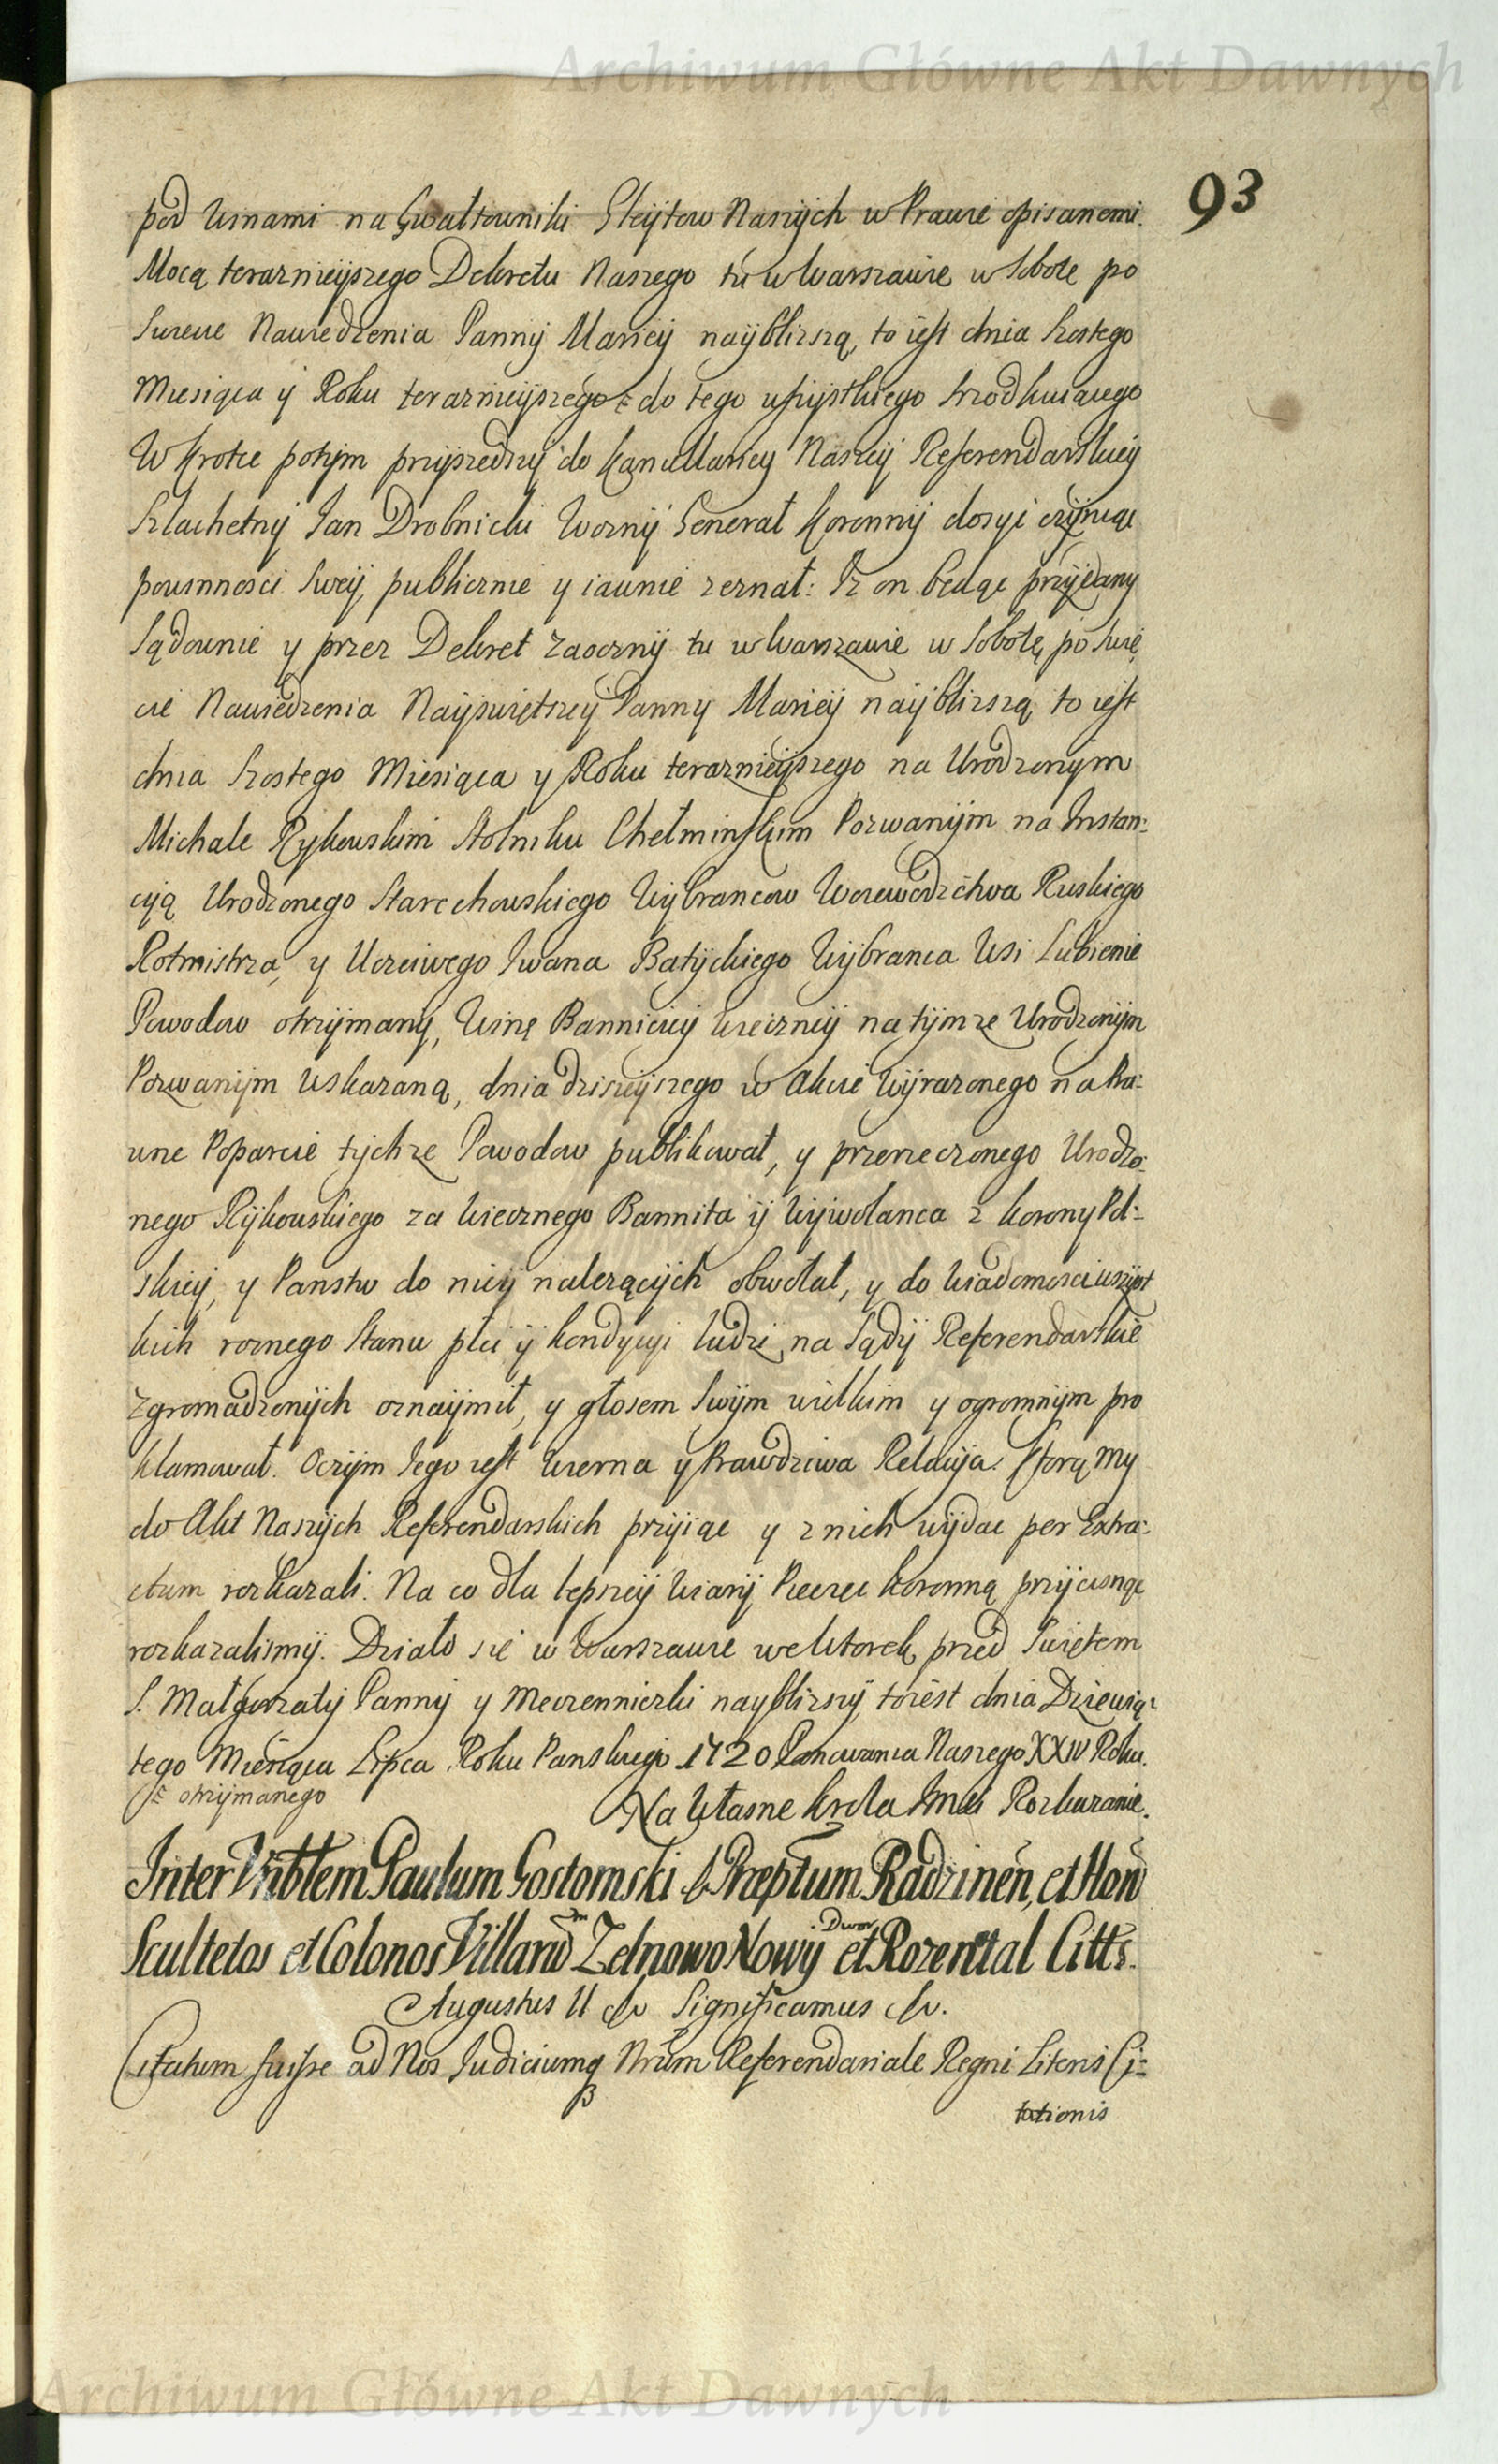 Archiwum Główne Akt Dawnych
93
pod winami na Gwałtowniki Gleytow Naszych w Prawie opisanemi.
Mocą teraznieyszego Dekretu Naszego tu w Warszawie w Sobotę po
Swięcie Nawiedzenia Panny Maryey nayblizszą, to iest dnia szostego
Miesiąca y Roku teraznieyszego ⁘ do tego wszystkiego srzodkuiącego
W krotce potym przyszedszy do Kancellaryey Naszey Referendarskiey
Szlachetny Jan Drobnicki Wozny Generał Koronny dosyc czyniąc
powinnosci swey, publicznie y iawnie zeznał: Iz on będąc przydany
Sądownie y przez Dekret zaoczny tu w Warszawie w Sobotę po Swię
cie Nawiedzenia Nayswiętszey Panny Maryey nayblizszą to iest
dnia szostego Miesiąca y Roku teraznieyszego na Urodzonym
Michale Rykowskim Stolniku Chełminskim Pozwanym na Instan:
cyą Urodzonego Starzchowskiego Wybrancow Woiewodztwa Ruskiego
Rotmistrza, y Uczciwego Iwana Batyckiego Wybranca Wsi Lubienie
Powodow otrzymany, Winę Banniciey wieczney na tymze Urodzonym
Pozwanym wskazaną, dnia dzisieyszego w Akcie wyrazonego na Pra:
wne Poparcie tychze Powodow publikował, y przerzeczonego Urodzo:
nego Rykowskiego za wiecznego Bannita y wywołanca z Korony Pol:
skiey, y Panstw do niey nalezących obwołał, y do wiadomosci wszyst
kich roznego Stanu płci y kondycyi ludzi, na Sądy Referendarskie
zgromadzonych oznaymił, y głosem swym wielkim y ogromnym pro
klamował. O czym Jego iest wierna y Prawdziwa Relacyja. Ktorą My
do Akt Naszych Referendarskich przyiąc y z nich wydac per Extra:
ctum rozkazali. Na co dla lepszey wiary Pieczęc Koronną przycisnąc
rozkazalismy. Działo się w Warszawie we Wtorek przed Swiętem
S. Małgorzaty Panny y Męczenniczki nayblizszy, to iest dnia Dziewią:
tego Miesiąca Lipca Roku Panskiego 1720 Panowania Naszego XXIV Roku.
⁘ otrzymanego
Na Własne Krola Jmci Rozkazanie.
Inter Nobtem Paulum Gostomski S. Præptum Radzinen, et Hon
Scultetos et Colonos Villarum Zelnowo Nowy Dwor et Rozental Citts.
Augustus II &c Significamus &c.
Citatum fuisse ad Nos Judiciumq Nrum Referendariale Regni Literis Ci=
tationis
Archiwum Główne Akt Dawnych